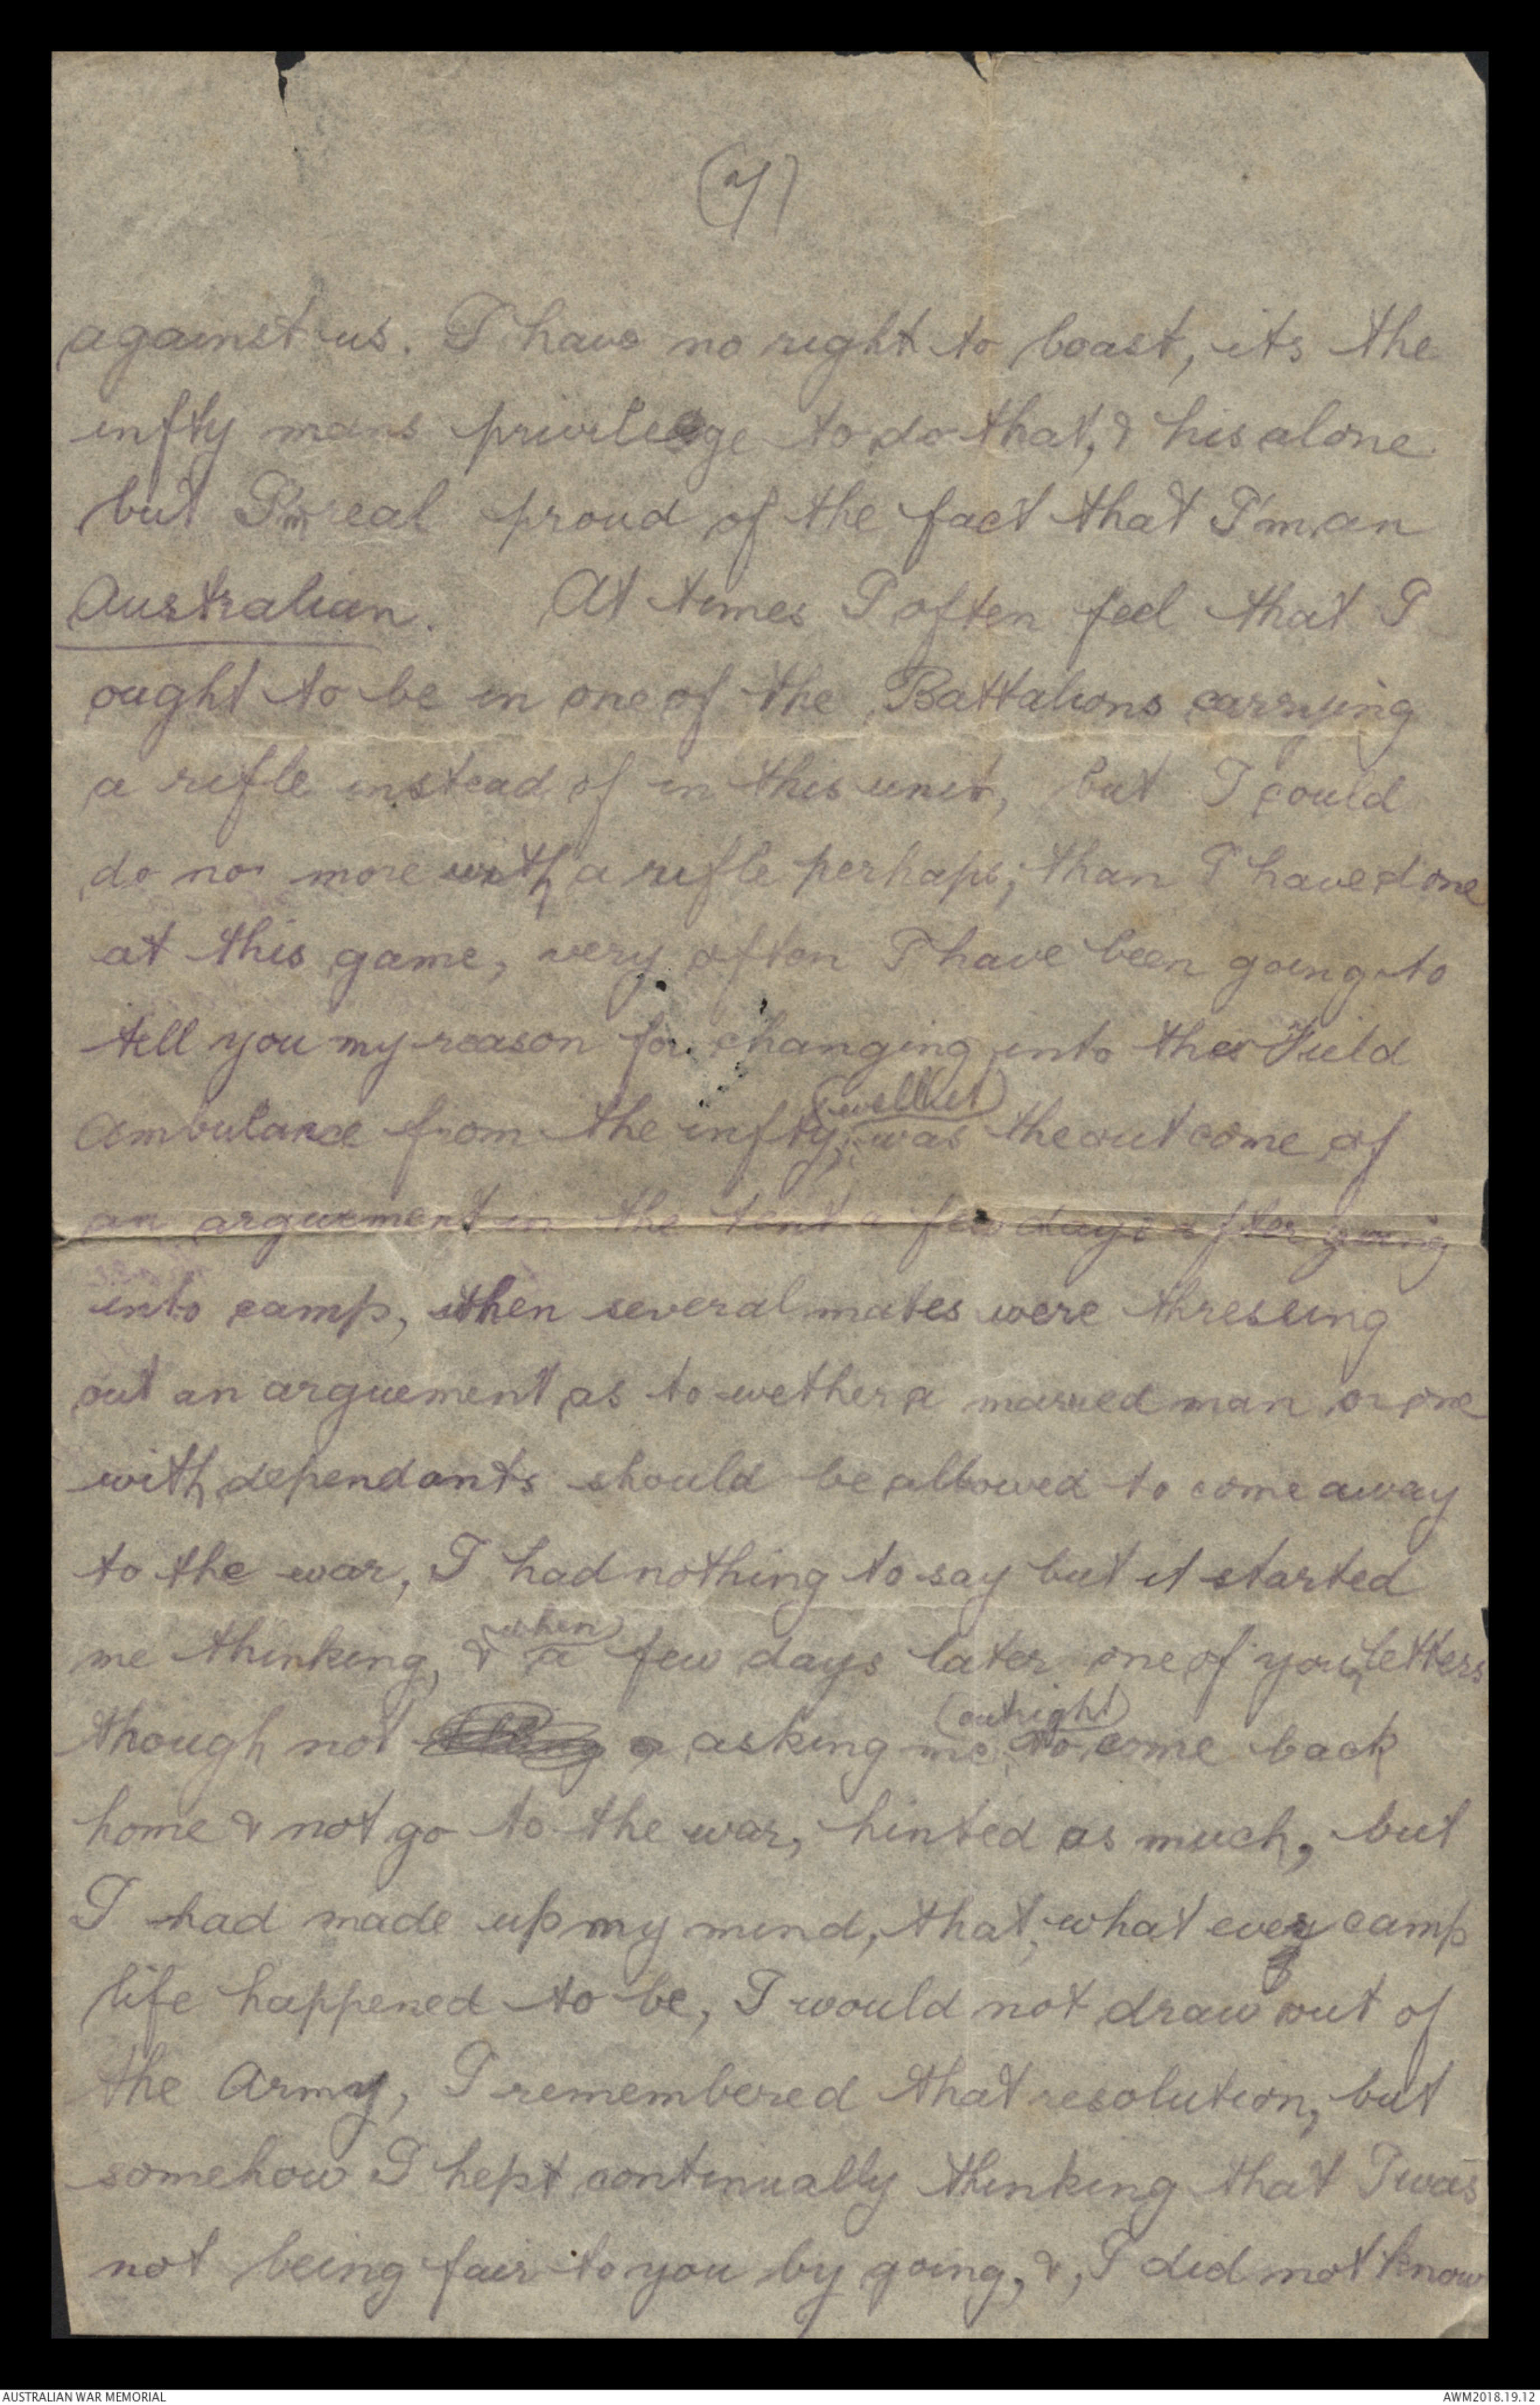 against us. I have no right to boast, its the
infty mans privilege to do that, & his alone
but I'm real proud of the fact that I'm an
Australian. At times I often feel that I
ought to be in one of the Battalions carrying
a rifle instead of in this unit, but I could
do no more with a rifle perhaps; than I have done
at this game, very often I have been going to
tell you my reason for changing into the Field
Ambulance from the infty, (well it) was the outcome of
an arguement in the tent a few days after going
into camp, when several mates were thressing
out an arguement as to wether a married man or one
with dependants should be allowed to come away
to the war, I had nothing to say but it started
me thinking, & (when) a few days later one of your letters
though not asking me (outright) to come back
home & not go to the war, hinted as much, but
I had made up my mind, that, what ever camp
life happened to be, I would not draw out of
the Army, I remembered that resolution, but
somehow I kept continually thinking that I was
not being fair to you by going, &, I did not know
AUSTRALIAN WAR MEMORIAL
AWM2018.19.12